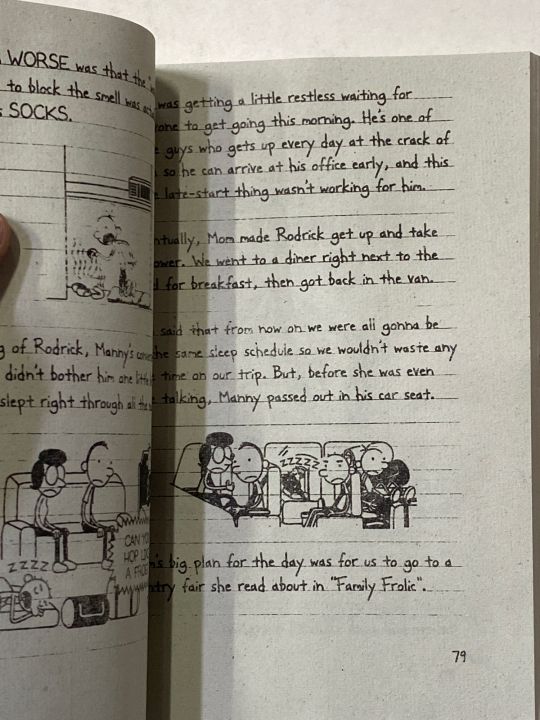 WORSE was that the
to block the smell was
SOCKS.
of Rodrick, Manny's
didn't bother him one
slept right through all the
CAN YO
HOP LI
A FRO
ZZZZ
was getting a little restless waiting for
one to get going this morning. He's one of
guys who gets up every day at the crack of
so he can arrive at his office early, and this
late-start thing wasn't working for him.
ntually, Mom made Rodrick get up and take
ower. We went to a diner right next to the
for breakfast, then got back in the van.
said that from now on we were all gonna be
he same sleep schedule so we wouldn't waste any
time on our trip. But, before she was even
talking, Manny passed out in his car seat.
ZZZZZ
's big plan for the day was for us to go to a
ntry fair she read about in "Family Frolic".
79